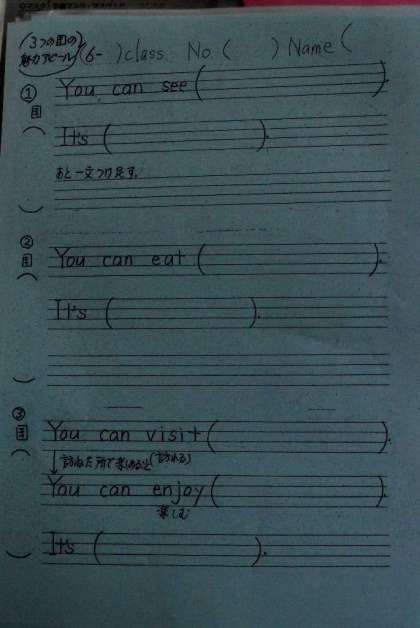 (3つの国の (6- ) class No. ( ) Name (
魅力アピール)
① You can see ( ).
国
( ) It's ( ).
あと一文つけ足す。
② You can eat ( ).
国
( ) It's ( ).
③ You can visit ( ).
国
( ) ↓訪ねた所で楽しめること(訪れる)
You can enjoy ( ).
楽しむ
It's ( ).